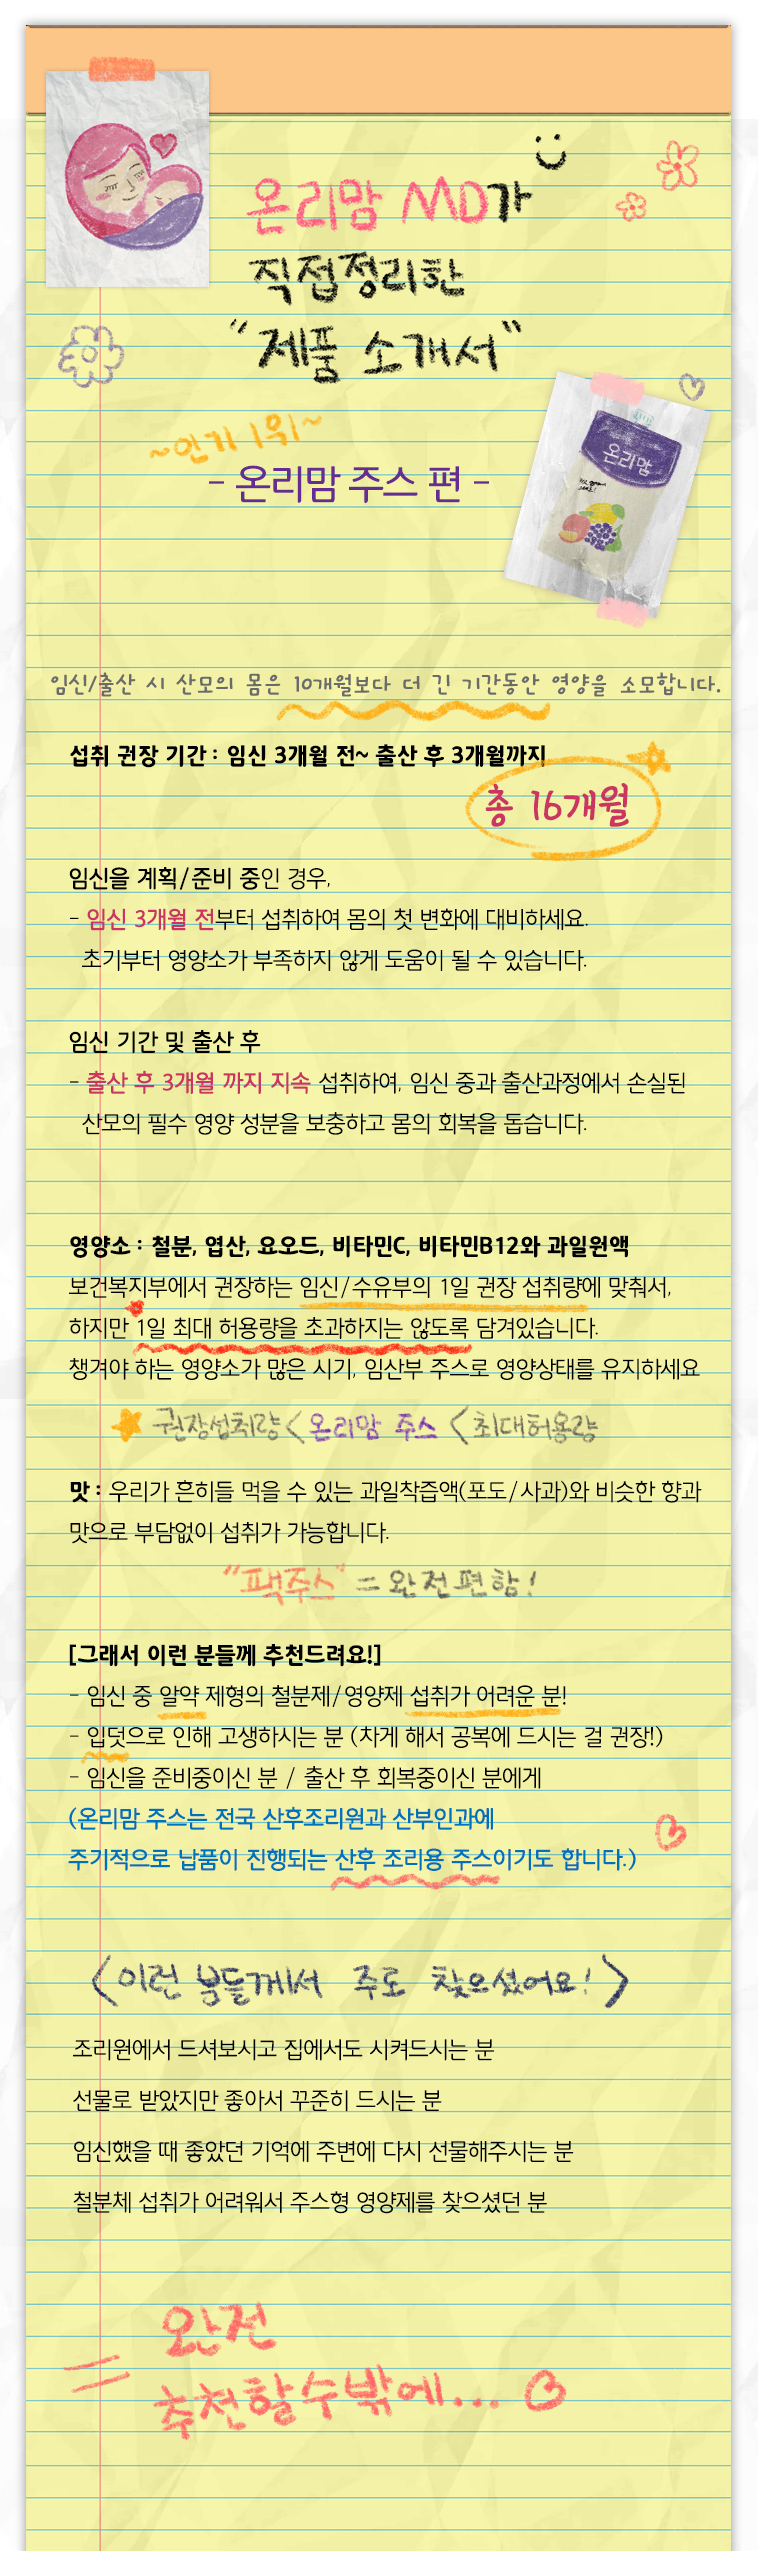 온리맘 MD가
직접정리한
"제품 소개서"
~인기 1위~
- 온리맘 주스 편 -
온리맘
임신/출산 시 산모의 몸은 10개월보다 더 긴 기간동안 영양을 소모합니다.
섭취 권장 기간 : 임신 3개월 전~ 출산 후 3개월까지
총 16개월
임신을 계획/준비 중인 경우,
- 임신 3개월 전부터 섭취하여 몸의 첫 변화에 대비하세요.
초기부터 영양소가 부족하지 않게 도움이 될 수 있습니다.
임신 기간 및 출산 후
- 출산 후 3개월 까지 지속 섭취하여, 임신 중과 출산과정에서 손실된
산모의 필수 영양 성분을 보충하고 몸의 회복을 돕습니다.
영양소 : 철분, 엽산, 요오드, 비타민C, 비타민B12와 과일원액
보건복지부에서 권장하는 임신/수유부의 1일 권장 섭취량에 맞춰서,
하지만 1일 최대 허용량을 초과하지는 않도록 담겨있습니다.
챙겨야 하는 영양소가 많은 시기, 임산부 주스로 영양상태를 유지하세요
권장섭취량 < 온리맘 주스 < 최대허용량
맛 : 우리가 흔히들 먹을 수 있는 과일착즙액(포도/사과)와 비슷한 향과
맛으로 부담없이 섭취가 가능합니다.
"팩주스" = 완전편함!
[그래서 이런 분들께 추천드려요!]
- 임신 중 알약 제형의 철분제/영양제 섭취가 어려운 분!
- 입덧으로 인해 고생하시는 분 (차게 해서 공복에 드시는 걸 권장!)
- 임신을 준비중이신 분 / 출산 후 회복중이신 분에게
(온리맘 주스는 전국 산후조리원과 산부인과에
주기적으로 납품이 진행되는 산후 조리용 주스이기도 합니다.)
<이런 분들께서 주로 찾으셨어요!>
조리원에서 드셔보시고 집에서도 시켜드시는 분
선물로 받았지만 좋아서 꾸준히 드시는 분
임신했을 때 좋았던 기억에 주변에 다시 선물해주시는 분
철분체 섭취가 어려워서 주스형 영양제를 찾으셨던 분
= 완전
추천할수밖에...